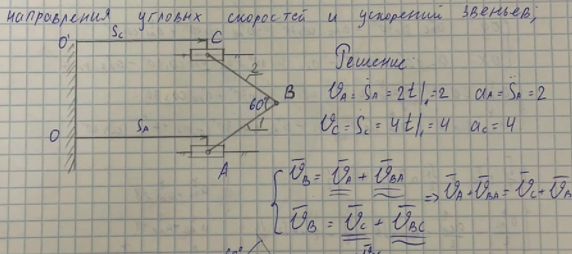 направления угловых скоростей и ускорений звеньев;
O' S_C C
2
60° B
O S_A 1
A
Решение:
υ_A = Ṡ_A = 2t|₁ = 2 a_A = S̈_A = 2
υ_C = Ṡ_C = 4t|₁ = 4 a_C = 4
{ ῡ_B = ῡ_A + ῡ_BA
ῡ_B = ῡ_C + ῡ_BC
⇒ ῡ_A + ῡ_BA = ῡ_C + ῡ_B